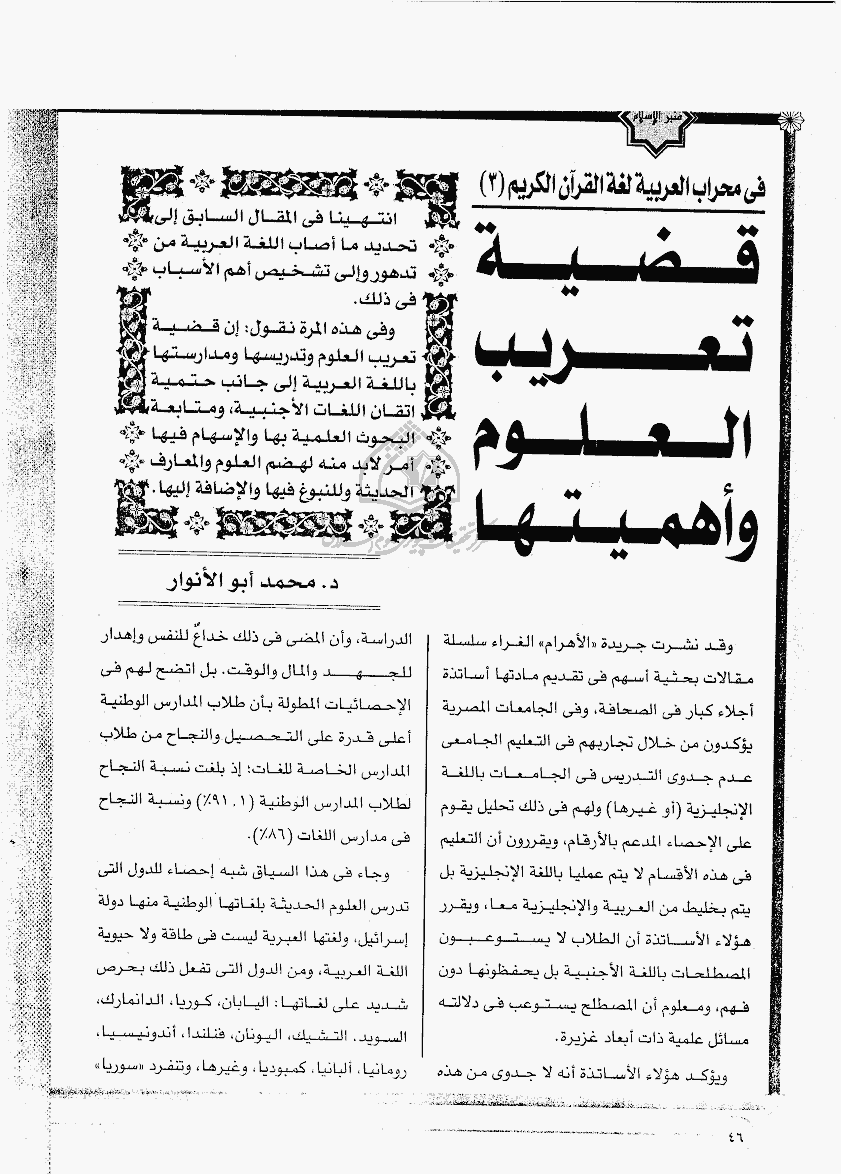 منبر الإسلام
فى محراب العربية لغة القرآن الكريم (٣)
قضية
تعريب
العلوم
وأهميتها
انتهينا فى المقال السابق إلى
تحديد ما أصاب اللغة العربية من
تدهور وإلى تشخيص أهم الأسباب
فى ذلك.
وفى هذه المرة نقول: إن قضية
تعريب العلوم وتدريسها ومدارستها
باللغة العربية إلى جانب حتمية
اتقان اللغات الأجنبية، ومتابعة
البحوث العلمية بها والإسهام فيها
أمر لابد منه لهضم العلوم والمعارف
الحديثة وللنبوغ فيها والإضافة إليها.
د. محمد أبو الأنوار
وقد نشرت جريدة «الأهرام» الغراء سلسلة
مقالات بحثية أسهم فى تقديم مادتها أساتذة
أجلاء كبار فى الصحافة، وفى الجامعات المصرية
يؤكدون من خلال تجاربهم فى التعليم الجامعى
عدم جدوى التدريس فى الجامعات باللغة
الإنجليزية (أو غيرها) ولهم فى ذلك تحليل يقوم
على الإحصاء المدعم بالأرقام، ويقررون أن التعليم
فى هذه الأقسام لا يتم عمليا باللغة الإنجليزية بل
يتم بخليط من العربية والإنجليزية معا، ويقرر
هؤلاء الأساتذة أن الطلاب لا يستوعبون
المصطلحات باللغة الأجنبية بل يحفظونها دون
فهم، ومعلوم أن المصطلح يستوعب فى دلالته
مسائل علمية ذات أبعاد غزيرة.
ويؤكد هؤلاء الأساتذة أنه لا جدوى من هذه
الدراسة، وأن المضى فى ذلك خداعٌ للنفس وإهدار
للجهد والمال والوقت. بل اتضح لهم فى
الإحصائيات المطولة بأن طلاب المدارس الوطنية
أعلى قدرة على التحصيل والنجاح من طلاب
المدارس الخاصة للغات؛ إذ بلغت نسبة النجاح
لطلاب المدارس الوطنية (٩١.١٪) ونسبة النجاح
فى مدارس اللغات (٨٦٪).
وجاء فى هذا السياق شبه إحصاء للدول التى
تدرس العلوم الحديثة بلغاتها الوطنية منها دولة
إسرائيل، ولغتها العبرية ليست فى طاقة ولا حيوية
اللغة العربية، ومن الدول التى تفعل ذلك بحرص
شديد على لغاتها: اليابان، كوريا، الدانمارك،
السويد. التشيك، اليونان، فنلندا، أندونيسيا،
رومانيا، ألبانيا، كمبوديا، وغيرها، وتنفرد «سوريا»
٤٦